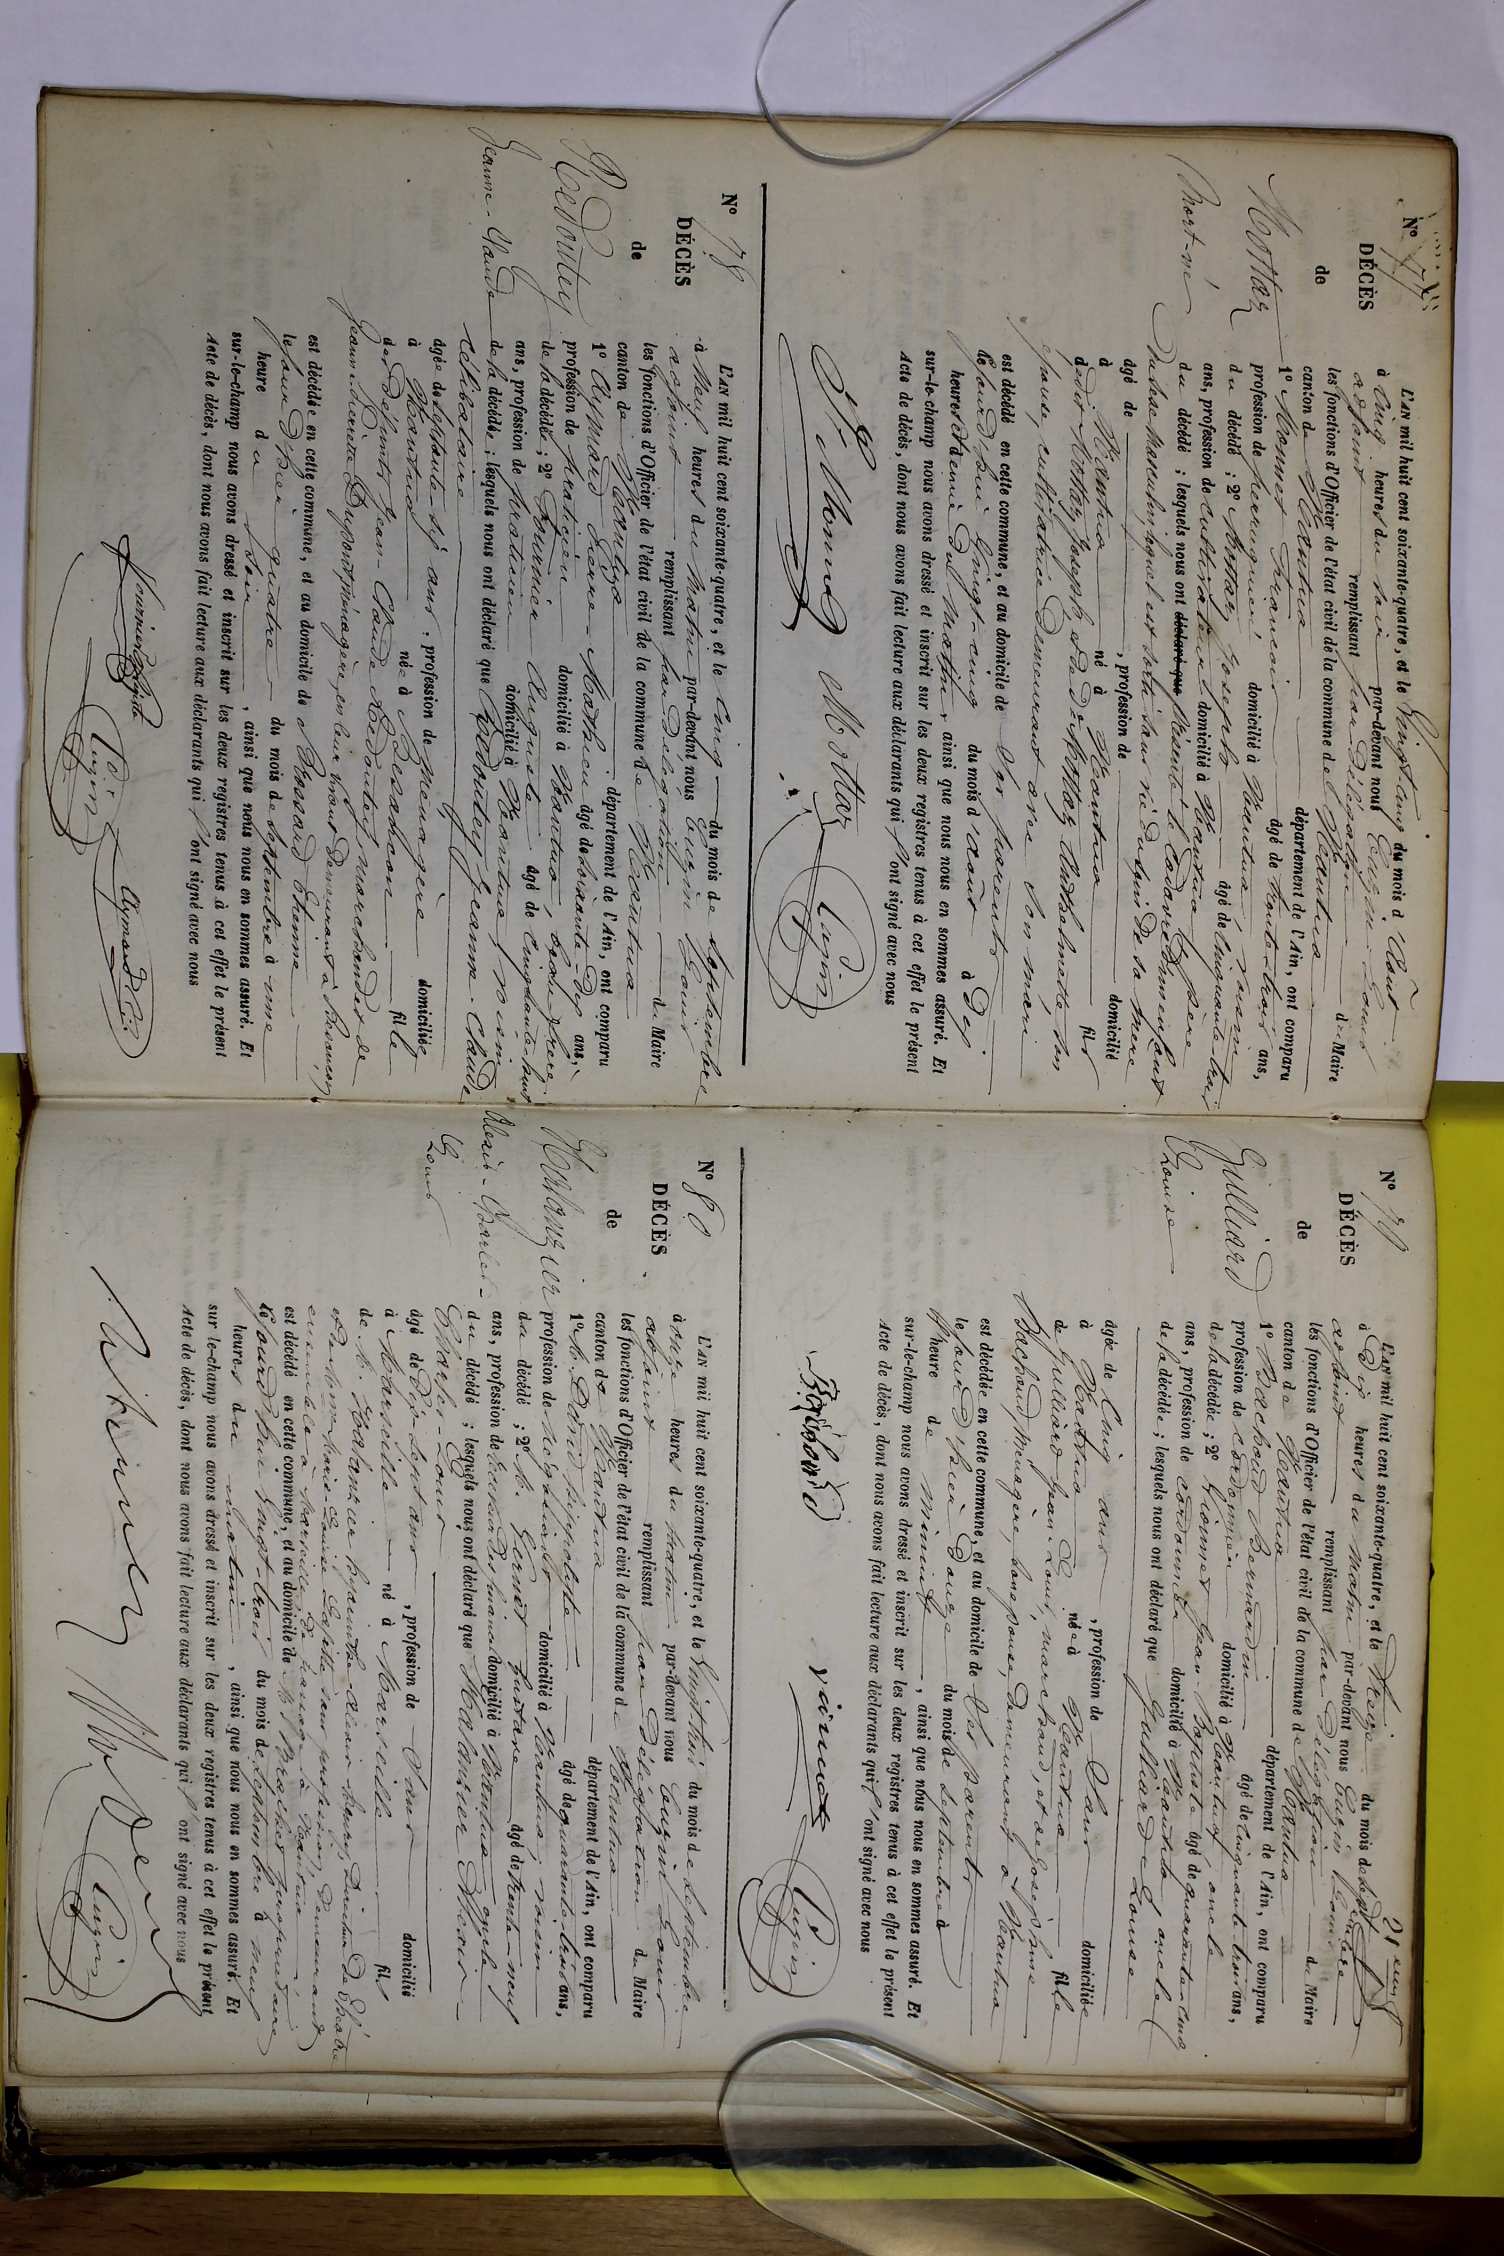 N° 77
DÉCÈS
de
Mottaz
Mort-né
L'AN mil huit cent soixante-quatre, et le Vingt cinq du mois d'Août
à Cinq heures du Soir par-devant nous Cugin Louis
adjoint remplissant par Délégation du Maire
les fonctions d'Officier de l'état civil de la commune de Nantua
canton de Nantua département de l'Ain, ont comparu
1° Monnet François âgé de trente-trois ans,
profession de perruquier domicilié à Nantua, voisin
du décédé ; 2° Mottaz Joseph âgé de cinquante trois
ans, profession de cultivateur domicilié à Nantua, père
du décédé ; lesquels nous ont déclaré que présenté le Cadavre d'un enfant
Du Sexe Masculin, lequel est sorti sans vie du sein de sa mère
âgé de , profession de domicilié
à Nantua né à Nantua fils
dudit Mottaz Joseph, et de
épouse, cultivatrice demeurant avec son mari
est décédé en cette commune, et au domicile de Ses parents
le jourd'hui Vingt-cinq du mois d'août à Dix
heures et demie du Matin, ainsi que nous nous en sommes assuré. Et
sur-le-champ nous avons dressé et inscrit sur les deux registres tenus à cet effet le présent
Acte de décès, dont nous avons fait lecture aux déclarants qui l'ont signé avec nous
Monnet Mottaz Cugin
N° 78
DÉCÈS
de
Redoutey
Jeanne-Claude
L'AN mil huit cent soixante-quatre, et le Cinq du mois de Septembre
à Neuf heures du Matin par-devant nous Cugin Louis
adjoint remplissant par délégation du Maire
les fonctions d'Officier de l'état civil de la commune de Nantua
canton de Nantua département de l'Ain, ont comparu
1° Aymard Pierre-Mathieu âgé de soixante-dix ans,
profession de praticien domicilié à Nantua, beau frère
de la décédée ; 2° Fournier Auguste âgé de cinquante-huit
ans, profession de praticien domicilié à Nantua, voisin
de la décédée ; lesquels nous ont déclaré que Redoutey Jeanne-Claude
célibataire
âgée de soixante dix ans, profession de ménagère domiciliée
à Nantua née à Besançon fille
des défunts Jean-Claude Redoutey, marchand et de
Jeanne Dupont, ménagère, en leur vivant demeurant à Besançon
est décédée en cette commune, et au domicile de Mossard Etienne
le jour d'hier quatre du mois de Septembre à une
heure du soir, ainsi que nous nous en sommes assuré. Et
sur-le-champ nous avons dressé et inscrit sur les deux registres tenus à cet effet le présent
Acte de décès, dont nous avons fait lecture aux déclarants qui l'ont signé avec nous
Cugin Aymard
N° 79
DÉCÈS
de
Juilliard
Louise
L'AN mil huit cent soixante-quatre, et le Treize du mois de Septembre
à Dix heures du Matin par-devant nous Cugin Louis
adjoint remplissant par Délégation du Maire
les fonctions d'Officier de l'état civil de la commune de Nantua
canton de Nantua département de l'Ain, ont comparu
1° Bachoud Bernardin âgé de cinquante trois ans,
profession de cordonnier domicilié à Nantua, oncle
de la décédée ; 2° Vionnet Jean-Baptiste âgé de quarante-cinq
ans, profession de cordonnier domicilié à Nantua oncle
de la décédée ; lesquels nous ont déclaré que Juilliard Louise
âgée de Cinq ans, profession de Sans domiciliée
à Nantua née à Nantua fille
de Juilliard Jean Louis, marchand, et de Joséphine
Bachoud, ménagère, son épouse, demeurant à Nantua
est décédée en cette commune, et au domicile de Ses parents
le jour d'hier Douze du mois de Septembre à
heure de minuit, ainsi que nous nous en sommes assuré. Et
sur-le-champ nous avons dressé et inscrit sur les deux registres tenus à cet effet le présent
Acte de décès, dont nous avons fait lecture aux déclarants qui l'ont signé avec nous
Cugin
N° 80
DÉCÈS
de
Malanzier
Alexis-Charles-
Louis
L'AN mil huit cent soixante-quatre, et le Vingt trois du mois de Septembre
à onze heures du matin par-devant nous Cugin Louis
adjoint remplissant par Délégation du Maire
les fonctions d'Officier de l'état civil de la commune de Nantua
canton de Nantua département de l'Ain, ont comparu
1° M. David hippolite âgé de quarante trois ans,
profession de négociant domicilié à Nantua, voisin
du décédé ; 2° M. Gustave âgé de trente-neuf
ans, profession de domicilié à Nantua oncle
du décédé ; lesquels nous ont déclaré que Malanzier Alexis-
Charles-Louis
âgé de Dix sept ans, profession de Sans domicilié
à Marseille né à Marseille fils
de M. Malanzier hyacinthe-Alexis-henri, Directeur de Théâtre
et de dame Marie-Louise sans profession, demeurant
ensemble à Marseille, de passage à Nantua
est décédé en cette commune, et au domicile de
le jourd'hui vingt-trois du mois de Septembre à neuf
heures du matin, ainsi que nous nous en sommes assuré. Et
sur-le-champ nous avons dressé et inscrit sur les deux registres tenus à cet effet le présent
Acte de décès, dont nous avons fait lecture aux déclarants qui l'ont signé avec nous
Cugin